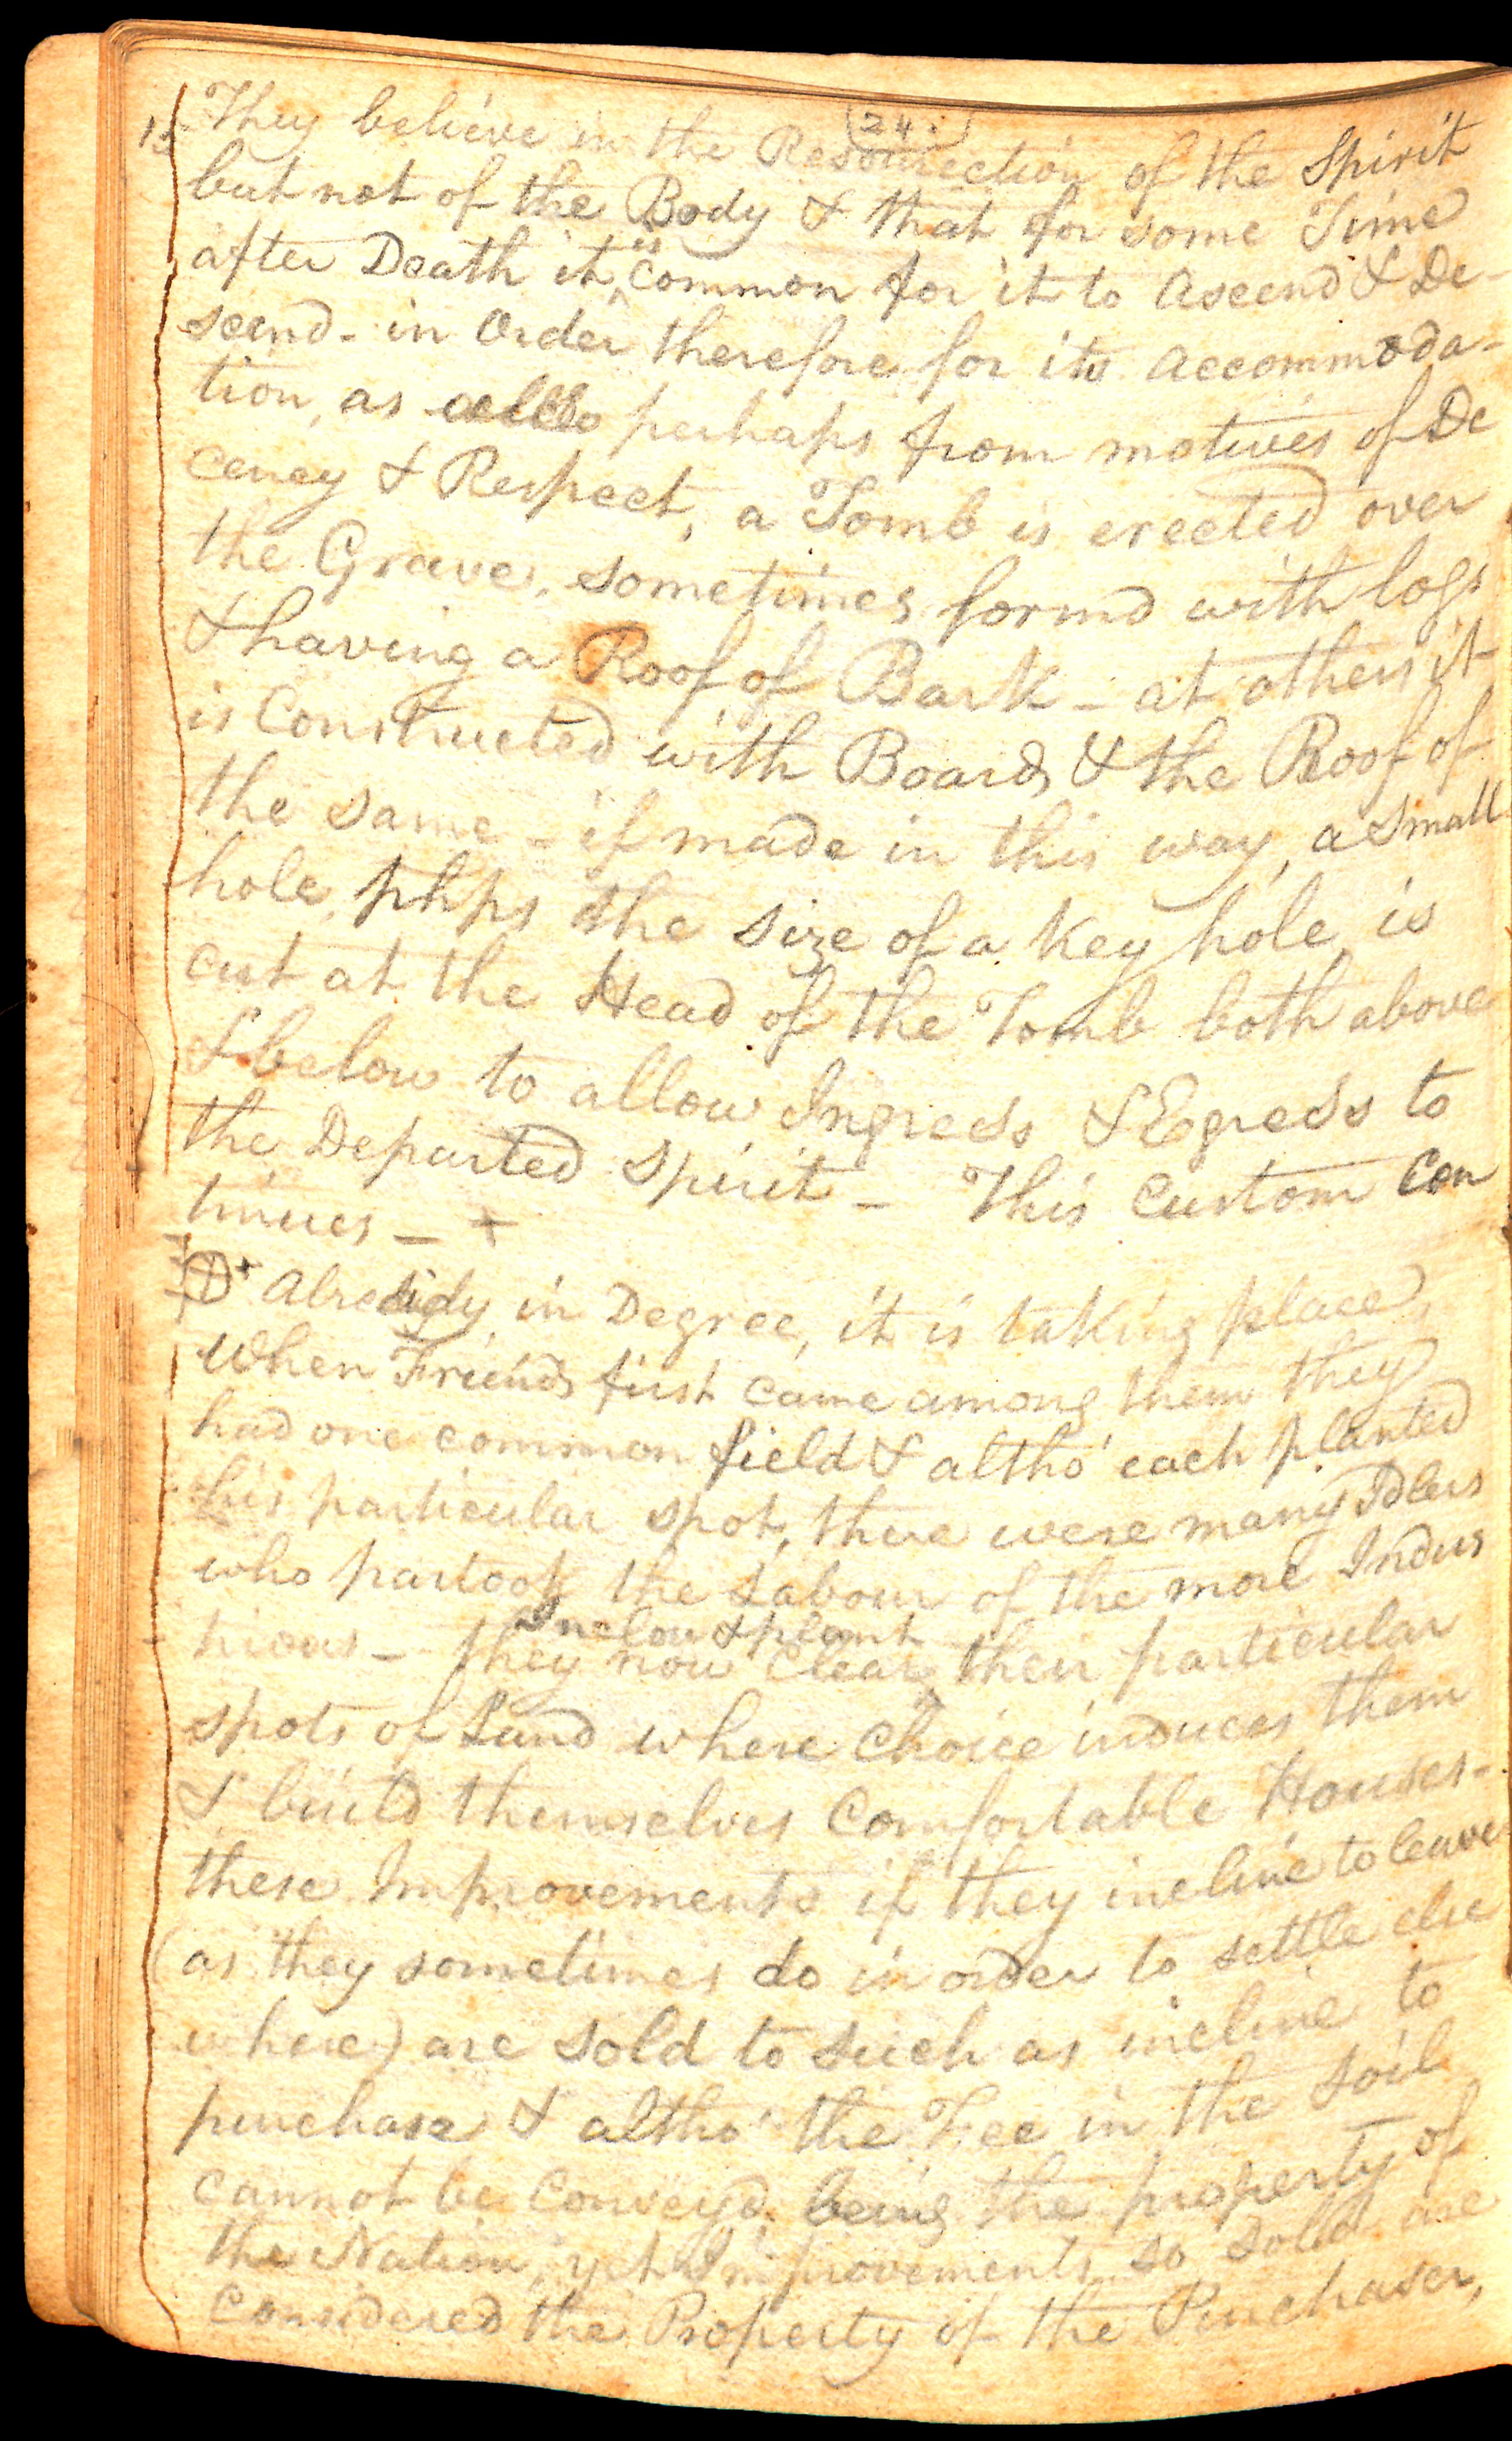 (24.)
15 They believe in the Resourection of the Spirit
but not of the Body & that for some Time
after Death it is common for it to Ascend & De-
scend - in Order therefore for its accommoda-
tion, as also perhaps from motives of De
cency & Respect, a Tomb is erected over
the Grave, sometimes formd with logs
& having a Roof of Bark - at others it
is Constructed with Boards & the Roof of
the same - if made in this way, a small
hole, phps the size of a Key hole, is
cut at the Head of the Tomb both above
& below to allow Ingress & Egress to
the Departed Spirit - This Custom Con
tinues - +
+ Already in Degree, it is taking place,
When Friends first came among them they
had one common field & altho' each planted
his particular spot, there were many Idlers
who partook the Labour of the more Indus
trious - they now Clear Inclose & plant their particular
spots of Land where choice induces them
& build themselves Comfortable Houses -
these Improvements if they incline to leave
(as they sometimes do in order to settle else
where) are sold to such as incline to
purchase & altho' the Fee in the Soil
cannot be Convey'd being the property of
the Nation, yet Improvements so sold are
considered the Property of the Purchaser,